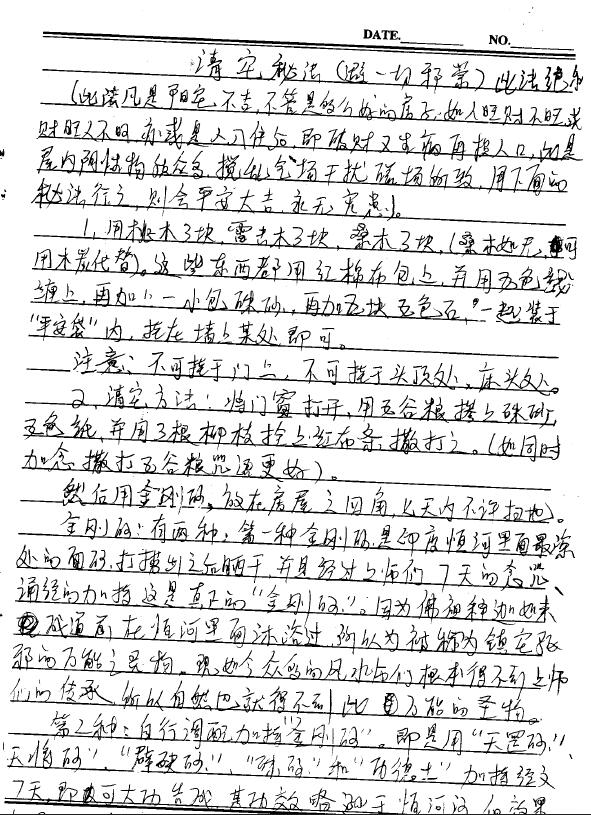 DATE. NO.
清宅秘法(避一切邪祟)此法绝
(此法凡是阳宅不吉,不管是多么好的房子,如人旺财不旺,或
财旺人不旺,亦或是人入住后,即破财又生病再损人口,
屋内阴性物,搅乱气场干扰磁场所致,用下面的
秘法行之,则会平安大吉,永无灾患)。
1,用桃木3块,雷击木3块,桑木3块,(桑木如无,可
用木炭代替)。这些东西都用红棉布包上,并用五色线
缠上,再加上一小包硃砂,再加五块五色石,一起装于
"平安袋"内,挂在墙上某处即可。
注意:不可挂于门上,不可挂于头顶处,床头处。
2,清宅方法:将门窗打开,用五谷粮拌上硃砂,
五色纸,并用3根柳枝拴上红布条,撒打之。(如同时
加念撒打五谷粮咒语更好)。
然后用金刚砂,放在房屋之四角,七天内不许扫地。
金刚砂:有两种,第一种金刚砂是印度恒河里面最深
处的面砂,打捞出之后晒干,并且经过上师们7天的念咒、
诵经的加持这是真正的"金刚砂"。因为佛祖释迦如来
成道前在恒河里面沐浴过,所以为被称为镇宅驱
邪的万能之圣物,现如今众多的风水师们根本得不到上师
们的传承,所以自然也就得不到此万能的圣物。
第2种:自行调配加持"金刚砂"。即是用"天罡砂"、
天将砂"、"辟砂"、"硃砂"和"功德土"加持经文
7天,即可大功告成,其功效略逊于恒河沙,但效果